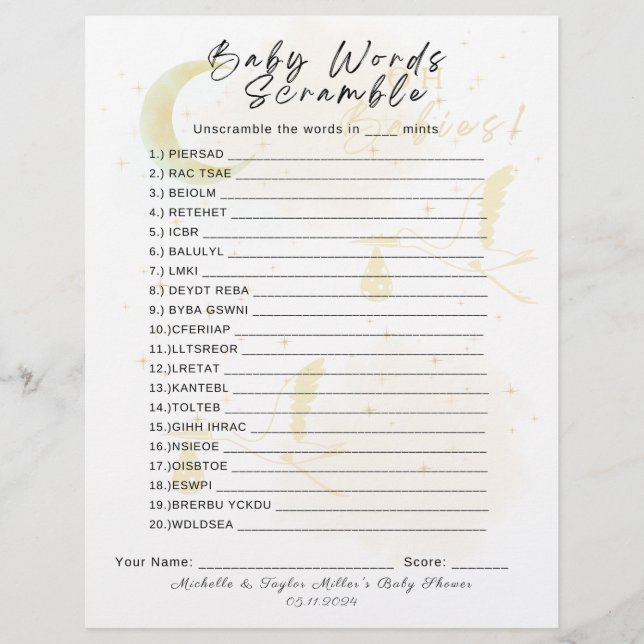 Baby Words
Scramble
OH
Babies!
Unscramble the words in ____ mints
1.) PIERSAD ____________________
2.) RAC TSAE ____________________
3.) BEIOLM ____________________
4.) RETEHET ____________________
5.) ICBR ____________________
6.) BALULYL ____________________
7.) LMKI ____________________
8.) DEYDT REBA ____________________
9.) BYBA GSWNI ____________________
10.)CFERIIAP ____________________
11.)LLTSREOR ____________________
12.)LRETAT ____________________
13.)KANTEBL ____________________
14.)TOLTEB ____________________
15.)GIHH IHRAC ____________________
16.)NSIEOE ____________________
17.)OISBTOE ____________________
18.)ESWPI ____________________
19.)BRERBU YCKDU ____________________
20.)WDLDSEA ____________________
Your Name: ____________________ Score: _______
Michelle & Taylor Miller's Baby Shower
05.11.2024